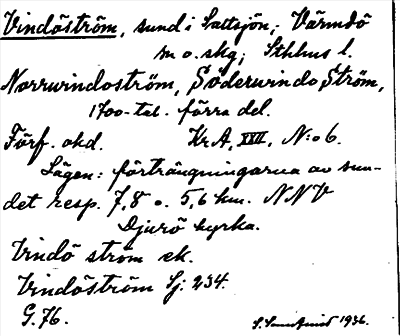 Vindöström, sund i Saltsjön; Värmdö
m o. skg; Sthlms l.
Norrwindoström, SöderwindoStröm,
1700-tal. förra del.
Förf. okd. Kr.A, XVII, N:o 6.
Lägen: förträngningarna av sun-
det resp. 7,8 o. 5,6 km. NNV
Djurö kyrka.
Vindö ström ek.
Vindöström Sj: 234.
G. 76.
1936.